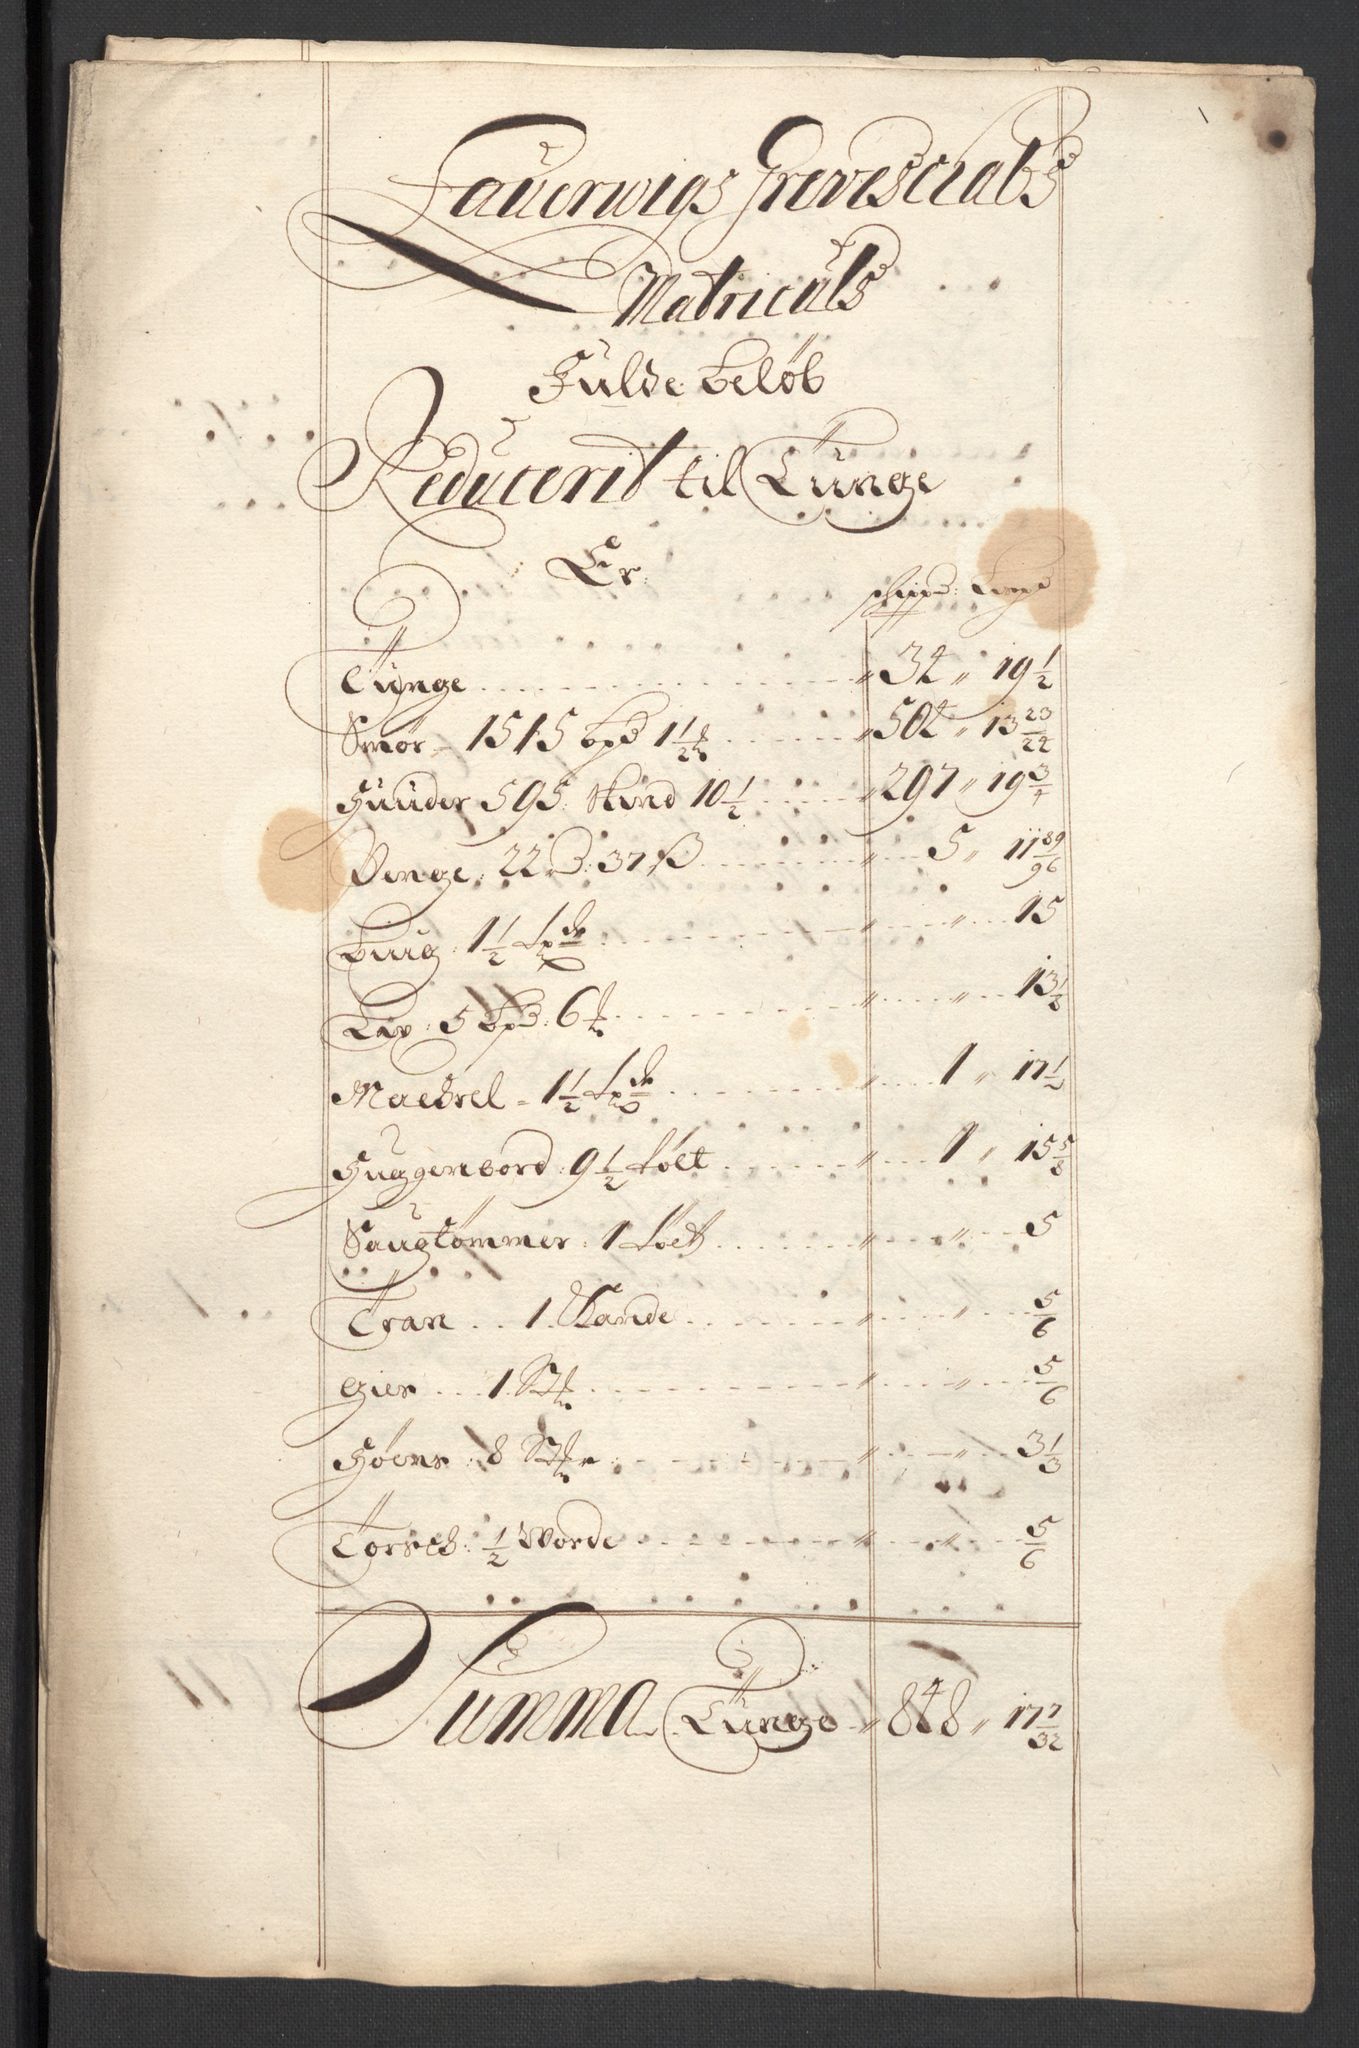 Lauerwigs Grevescrabs
Matriculs
Fulde beløb
Reducerit til Tunge
Er
Schippd: Lispd
Tunge " 34 " 19 1/2
Smør 1515 bpd 1 1/2 " 504 " 13 23/24
Huuder 595: skind 10 1/2 " 297 " 19 3/4
Penge: 22 d: 37 ß " 5 " 11 89/96
Biug: 1 1/2 " " 15
5 bpd: 6 " " 13 1/8
Maedrel 1 1/2 " 1 " 17 1/2
Huggenbord: 9 1/2 tølt " 1 " 15 5/8
Saugtømmer: 1 tølt " " 5
Tran 1 Kande " " 5/6
Gier 1 St " " 5/6
Høens: 8 St " " 3 1/3
Torsch: 1/2 Worde " " 5/6
Summa Tunge " 848 " 17 7/32